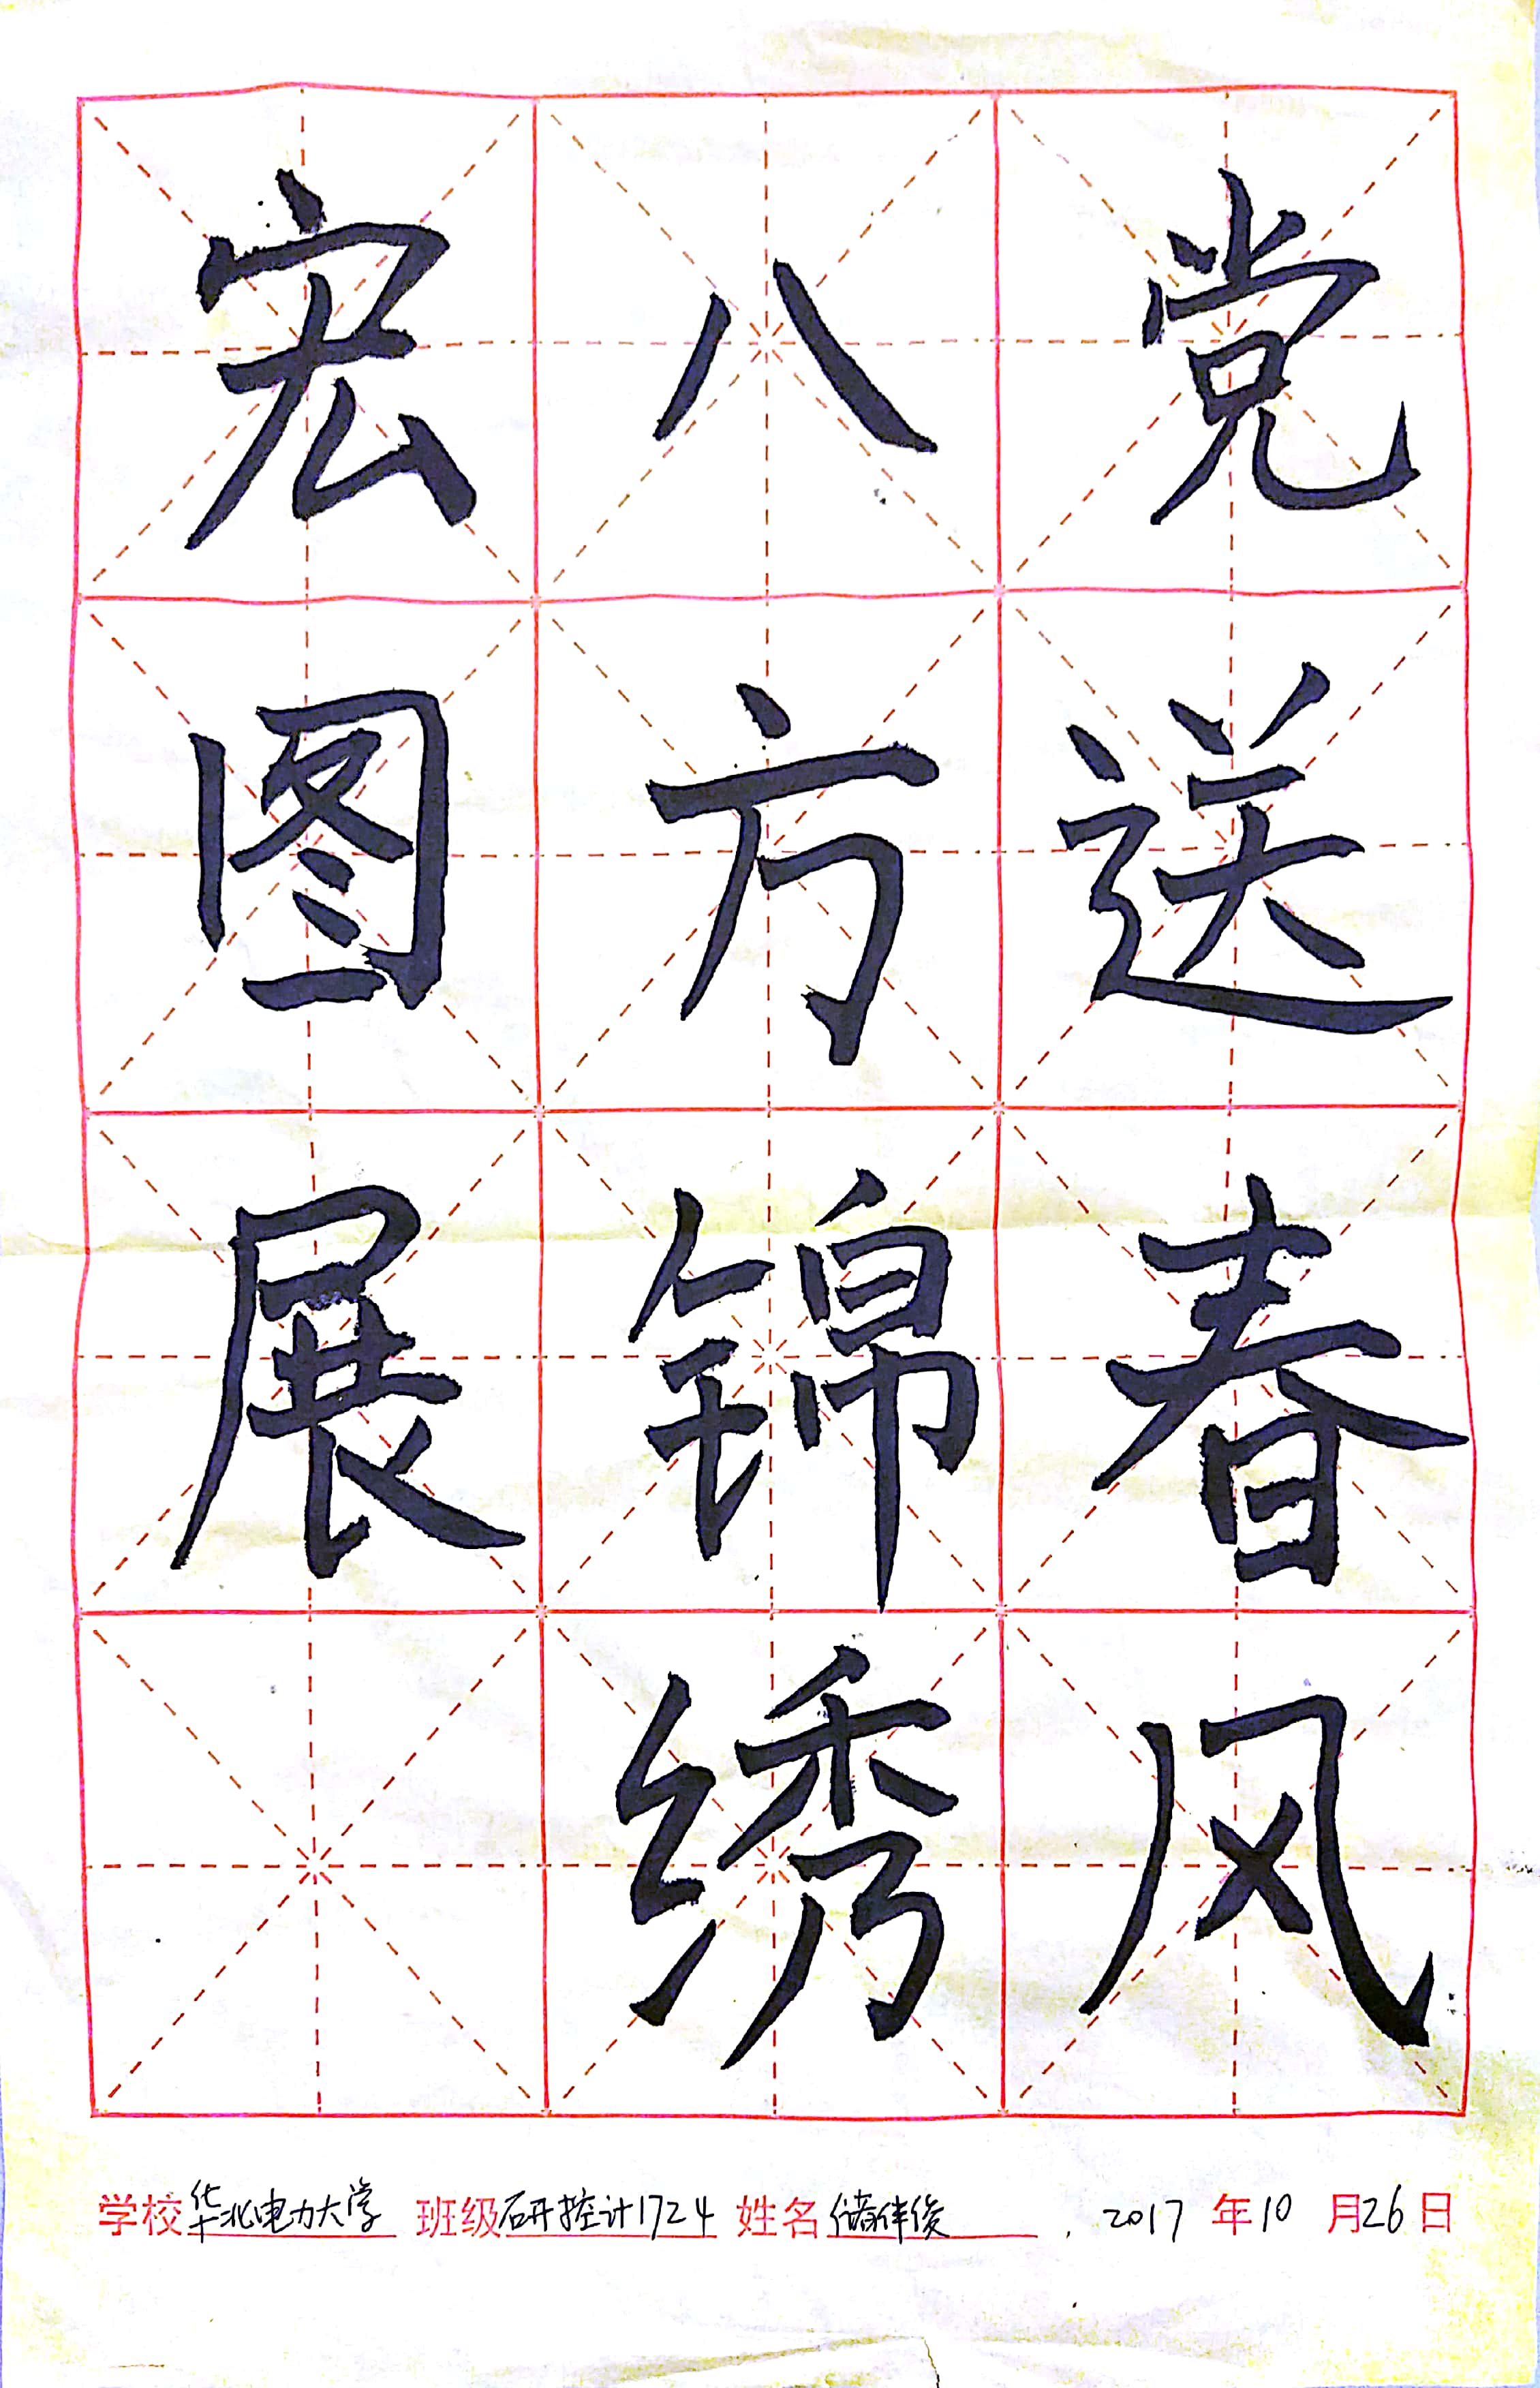 党送春风
八方锦绣
宏图展
学校华北电力大学 班级研控计1724 姓名储祥俊 2017年10月26日